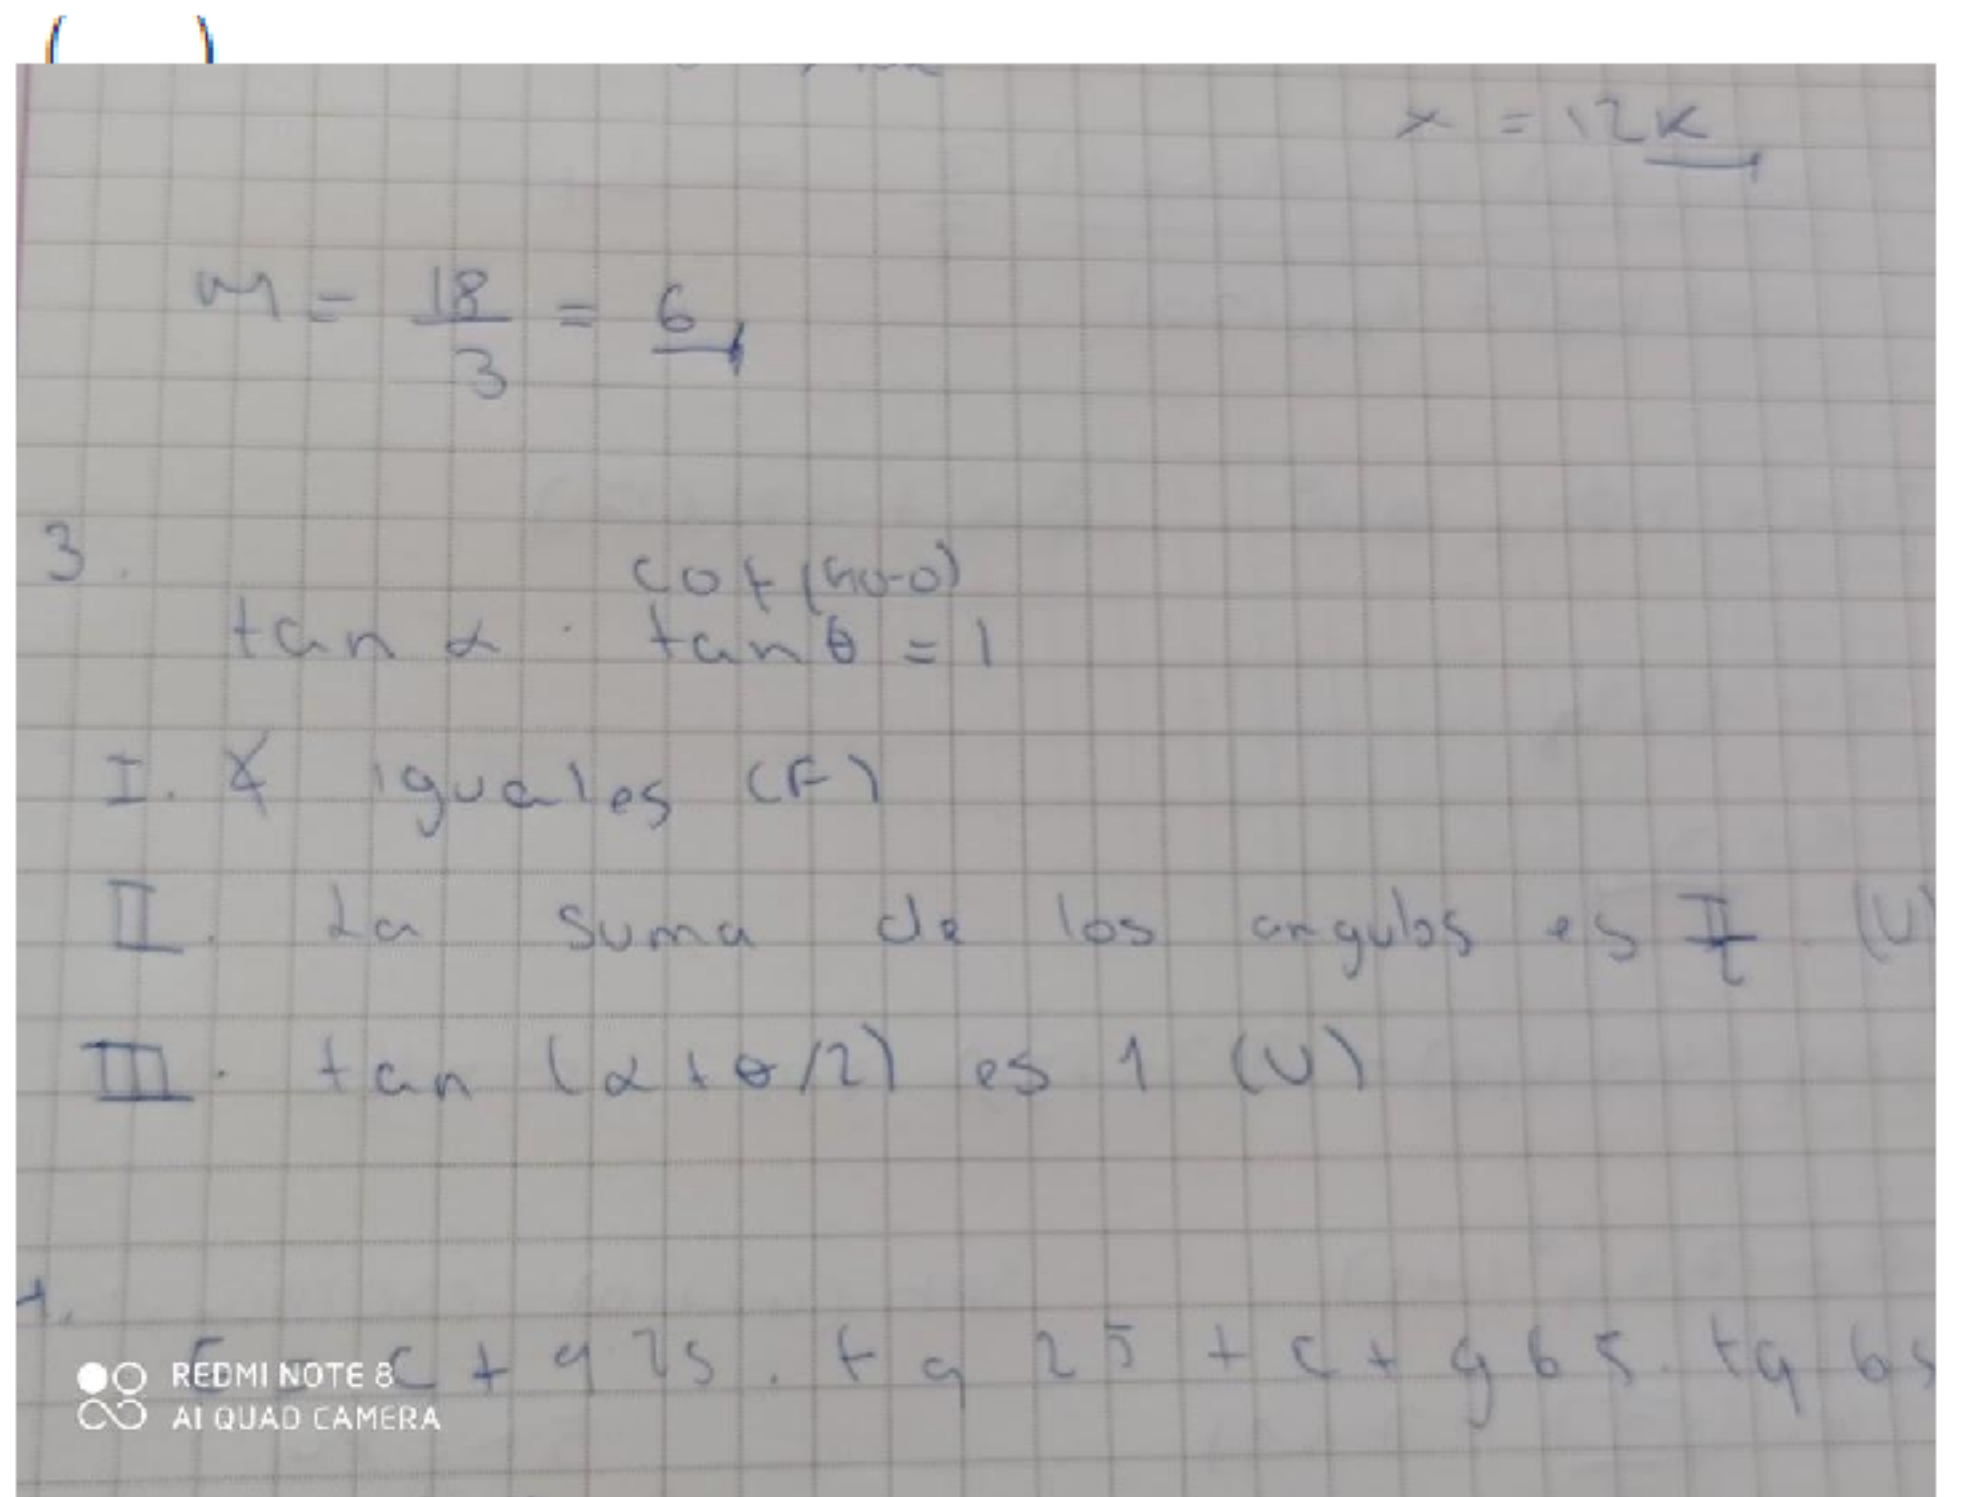 ( )
x = 12K
m = 18/3 = 6
3.
cot (90-θ)
tan α . tan θ = 1
I. ∡ iguales (F)
II. La suma de los angulos es π/2 . (V)
III. tan (α + θ/2) es 1 (V)
E = ctg 25 . tg 25 + ctg 65 . tg 65
REDMI NOTE 8
AI QUAD CAMERA